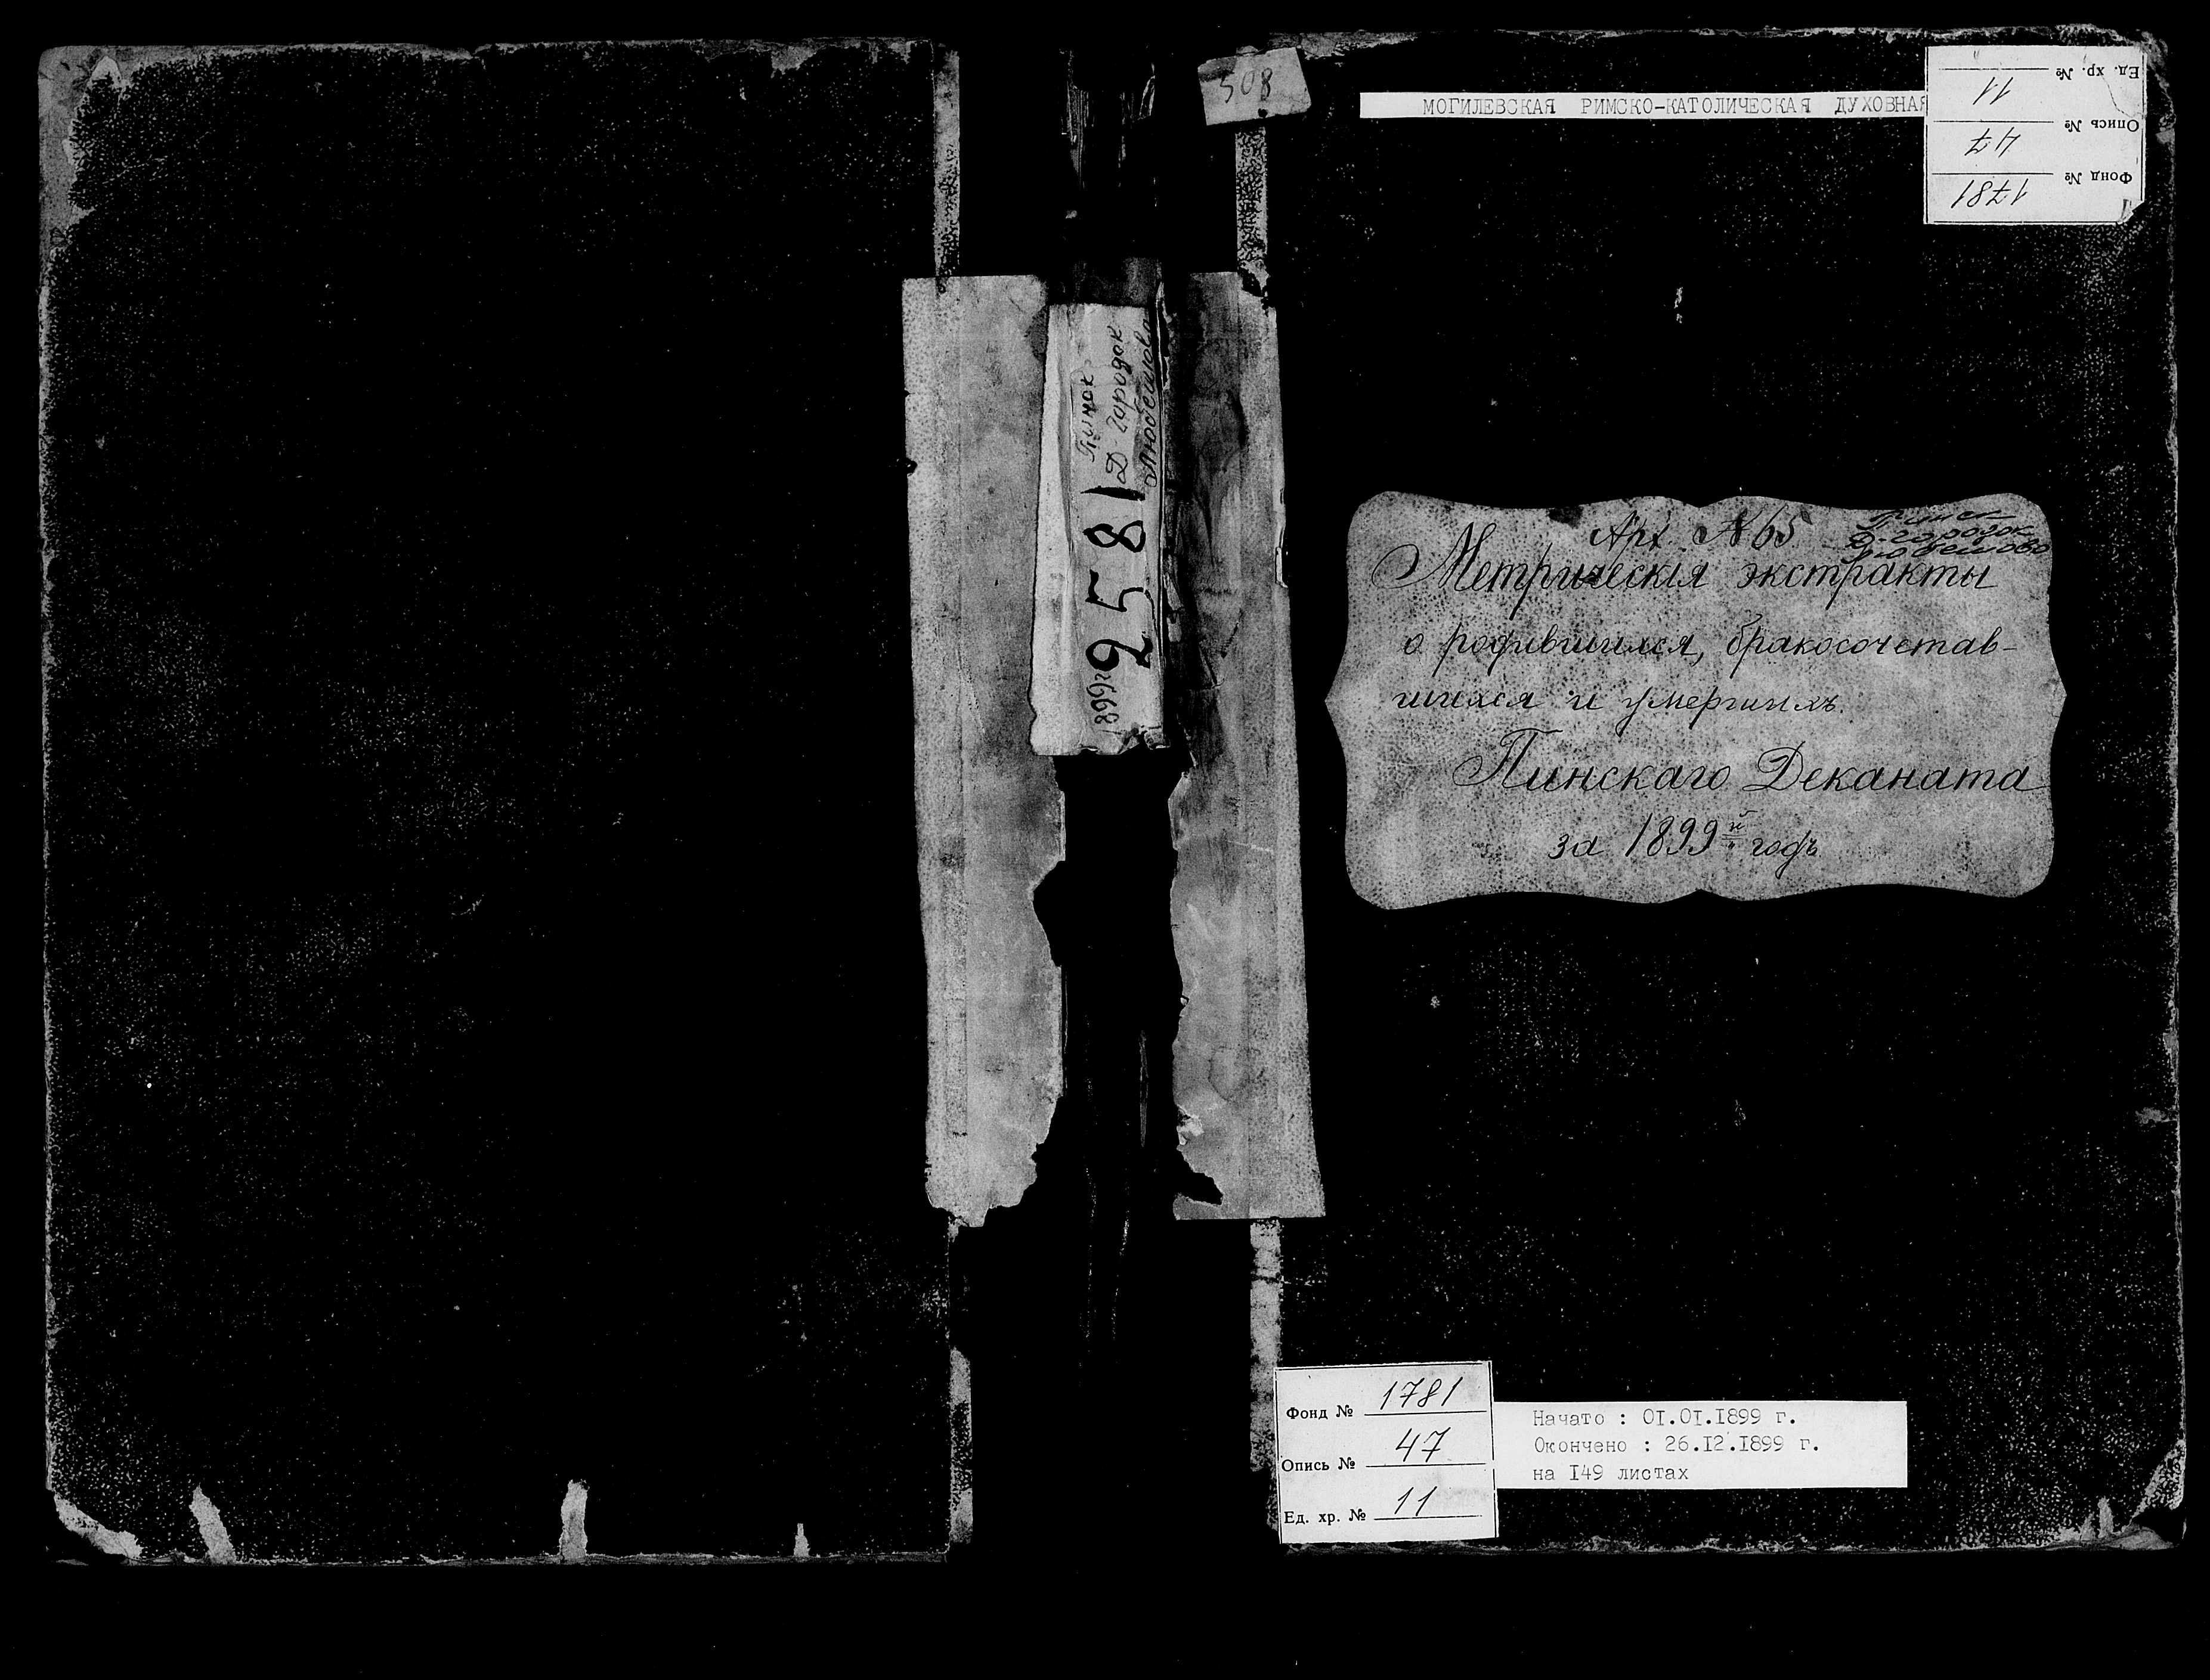 508
МОГИЛЕВСКАЯ РИМСКО-КАТОЛИЧЕСКАЯ ДУХОВНАЯ
Фонд № 1781
Опись № 47
Ед. хр. № 11
Пинск
Д-городок
Любешово
2581
1899г
Арх. №65
Пинск
Д-городок
Любешово
Метрическія экстракты
о родившихся, бракосочетав-
шихся и умершихъ
Пинскаго Деканата
за 1899й годъ
Фонд № 1781
Опись № 47
Ед. хр. № 11
Начато : 01.01.1899 г.
Окончено : 26.12.1899 г.
на 149 листах